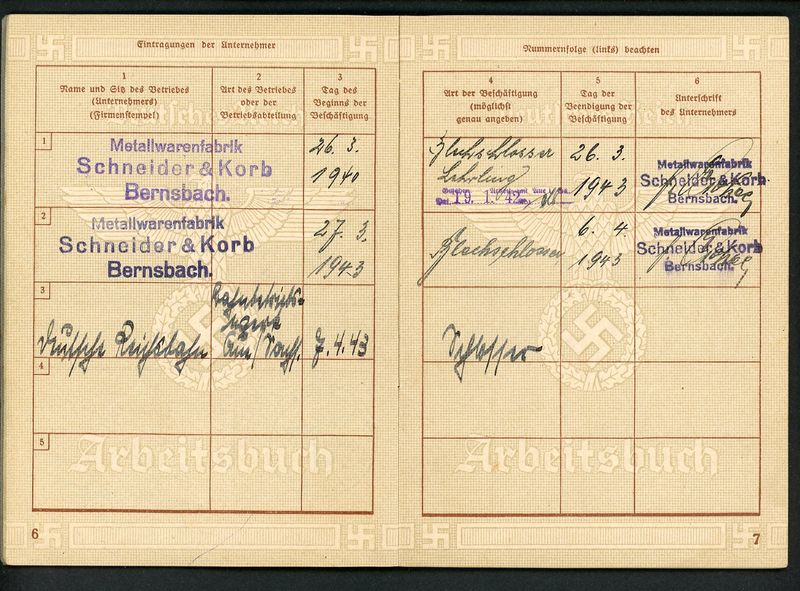 Eintragungen der Unternehmer
1
Name und Sitz des Betriebes
(Unternehmers)
(Firmenstempel)
2
Art des Betriebes
oder der
Betriebsabteilung
3
Tag des
Beginns der
Beschäftigung
1
Metallwarenfabrik
Schneider & Korb
Bernsbach.
26. 3.
1940
2
Metallwarenfabrik
Schneider & Korb
Bernsbach.
27. 3.
1943
3
Deutsche Reichsbahn
Aue/Sachs.
7. 4. 43
4
5
Arbeitsbuch
6
Nummernfolge (links) beachten
4
Art der Beschäftigung
(möglichst
genau angeben)
5
Tag der
Beendigung der
Beschäftigung
6
Unterschrift
des Unternehmers
Blechschlosser
Lehrling
19. 1. 42
26. 3.
1943
Metallwarenfabrik
Schneider & Korb
Bernsbach.
Blechschlosser
6. 4.
1943
Metallwarenfabrik
Schneider & Korb
Bernsbach.
Schlosser
Arbeitsbuch
7